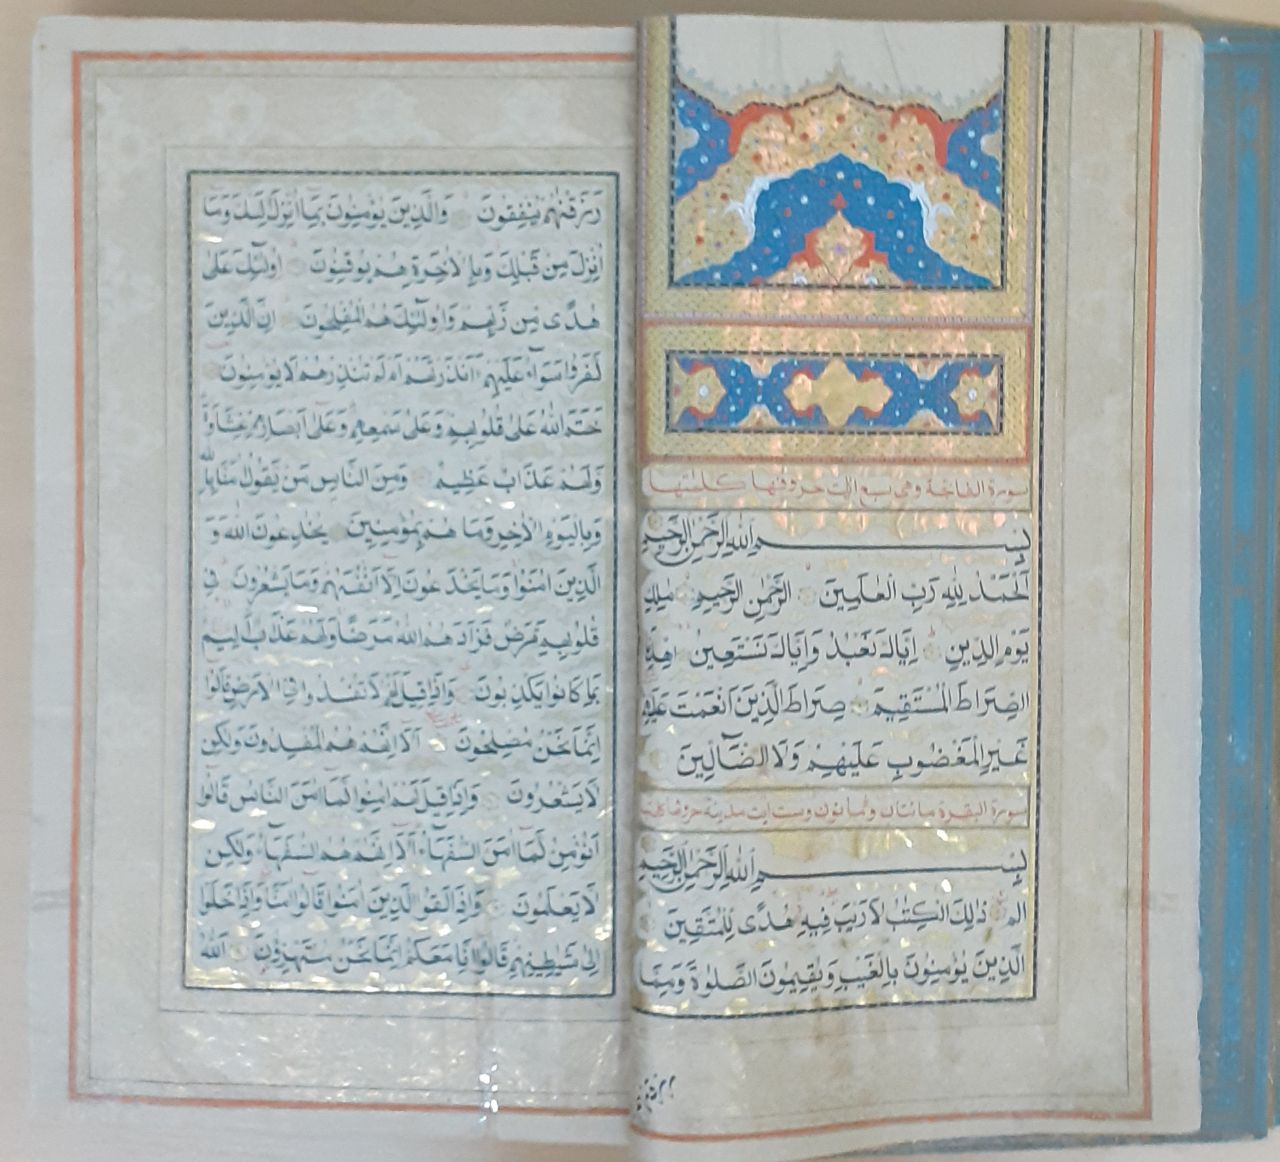 سورة الفاتحة وهى سبع ايات حروفها كلمتها
بِسْمِ اللهِ الرَّحْمٰنِ الرَّحِيمِ
اَلْحَمْدُ لِلّٰهِ رَبِّ الْعٰلَمِينَ الرَّحْمٰنِ الرَّحِيمِ مٰلِكِ
يَوْمِ الدِّينِ اِيَّاكَ نَعْبُدُ وَاِيَّاكَ نَسْتَعِينُ اِهْدِنَا
الصِّرَاطَ الْمُسْتَقِيمَ صِرَاطَ الَّذِينَ اَنْعَمْتَ عَلَيْهِمْ
غَيْرِ الْمَغْضُوبِ عَلَيْهِمْ وَلَا الضَّآلِّينَ
سورة البقرة مائتان وثمانون وست ايت مدينة حروفها
بِسْمِ اللهِ الرَّحْمٰنِ الرَّحِيمِ
الم ذٰلِكَ الْكِتٰبُ لَا رَيْبَ فِيهِ هُدًى لِلْمُتَّقِينَ
الَّذِينَ يُؤْمِنُونَ بِالْغَيْبِ وَيُقِيمُونَ الصَّلٰوةَ وَمِمَّا
رزقنهم
رَزَقْنٰهُمْ يُنْفِقُونَ وَالَّذِينَ يُؤْمِنُونَ بِمَا اُنْزِلَ اِلَيْكَ وَمَا
اُنْزِلَ مِنْ قَبْلِكَ وَبِالْاٰخِرَةِ هُمْ يُوقِنُونَ اُولٰٓئِكَ عَلٰى
هُدًى مِنْ رَبِّهِمْ وَاُولٰٓئِكَ هُمُ الْمُفْلِحُونَ اِنَّ الَّذِينَ
كَفَرُوا سَوَآءٌ عَلَيْهِمْ ءَاَنْذَرْتَهُمْ اَمْ لَمْ تُنْذِرْهُمْ لَا يُؤْمِنُونَ
خَتَمَ اللهُ عَلٰى قُلُوبِهِمْ وَعَلٰى سَمْعِهِمْ وَعَلٰى اَبْصَارِهِمْ غِشَاوَةٌ
وَلَهُمْ عَذَابٌ عَظِيمٌ وَمِنَ النَّاسِ مَنْ يَقُولُ اٰمَنَّا بِاللهِ
وَبِالْيَوْمِ الْاٰخِرِ وَمَا هُمْ بِمُؤْمِنِينَ يُخٰدِعُونَ اللهَ وَ
الَّذِينَ اٰمَنُوا وَمَا يَخْدَعُونَ اِلَّا اَنْفُسَهُمْ وَمَا يَشْعُرُونَ فِى
قُلُوبِهِمْ مَرَضٌ فَزَادَهُمُ اللهُ مَرَضًا وَلَهُمْ عَذَابٌ اَلِيمٌ
بِمَا كَانُوا يَكْذِبُونَ وَاِذَا قِيلَ لَهُمْ لَا تُفْسِدُوا فِى الْاَرْضِ قَالُوا
اِنَّمَا نَحْنُ مُصْلِحُونَ اَلَا اِنَّهُمْ هُمُ الْمُفْسِدُونَ وَلٰكِنْ
لَا يَشْعُرُونَ وَاِذَا قِيلَ لَهُمْ اٰمِنُوا كَمَا اٰمَنَ النَّاسُ قَالُوا
اَنُؤْمِنُ كَمَا اٰمَنَ السُّفَهَآءُ اَلَا اِنَّهُمْ هُمُ السُّفَهَآءُ وَلٰكِنْ
لَا يَعْلَمُونَ وَاِذَا لَقُوا الَّذِينَ اٰمَنُوا قَالُوا اٰمَنَّا وَاِذَا خَلَوْا
اِلٰى شَيٰطِينِهِمْ قَالُوا اِنَّا مَعَكُمْ اِنَّمَا نَحْنُ مُسْتَهْزِؤُنَ اَللهُ